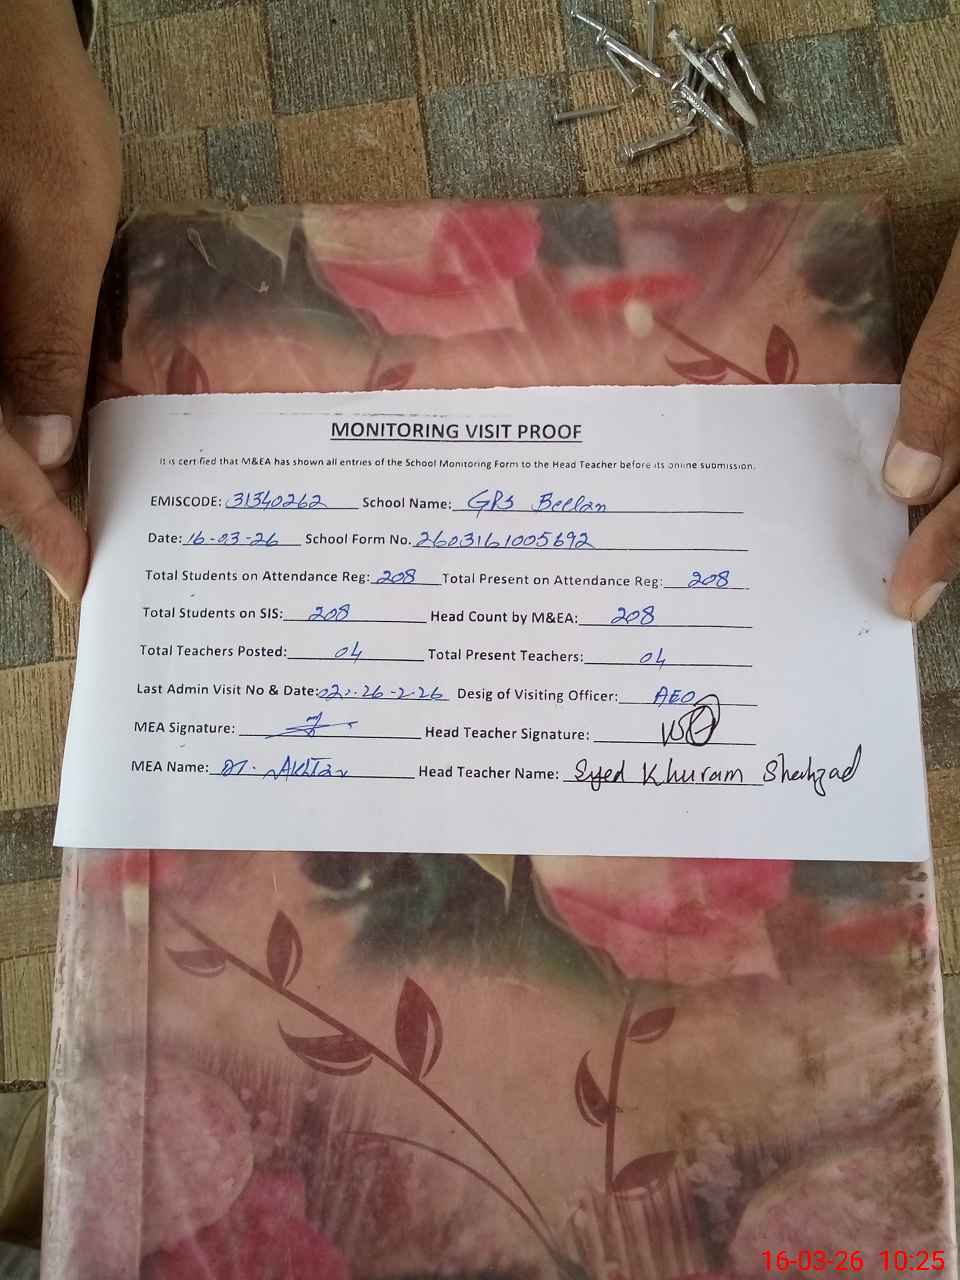 MONITORING VISIT PROOF
It is certified that M&EA has shown all entries of the School Monitoring Form to the Head Teacher before its online submission.
EMISCODE: 31340262 School Name: GPS Beelan
Date: 16-03-26 School Form No. 2603161005692
Total Students on Attendance Reg: 208 Total Present on Attendance Reg: 208
Total Students on SIS: 208 Head Count by M&EA: 208
Total Teachers Posted: 04 Total Present Teachers: 04
Last Admin Visit No & Date: 02, 26-2-26 Desig of Visiting Officer: AEO
MEA Signature: Head Teacher Signature:
MEA Name: Akhtar Head Teacher Name: Syed Khuram Shahzad
16-03-26 10:25